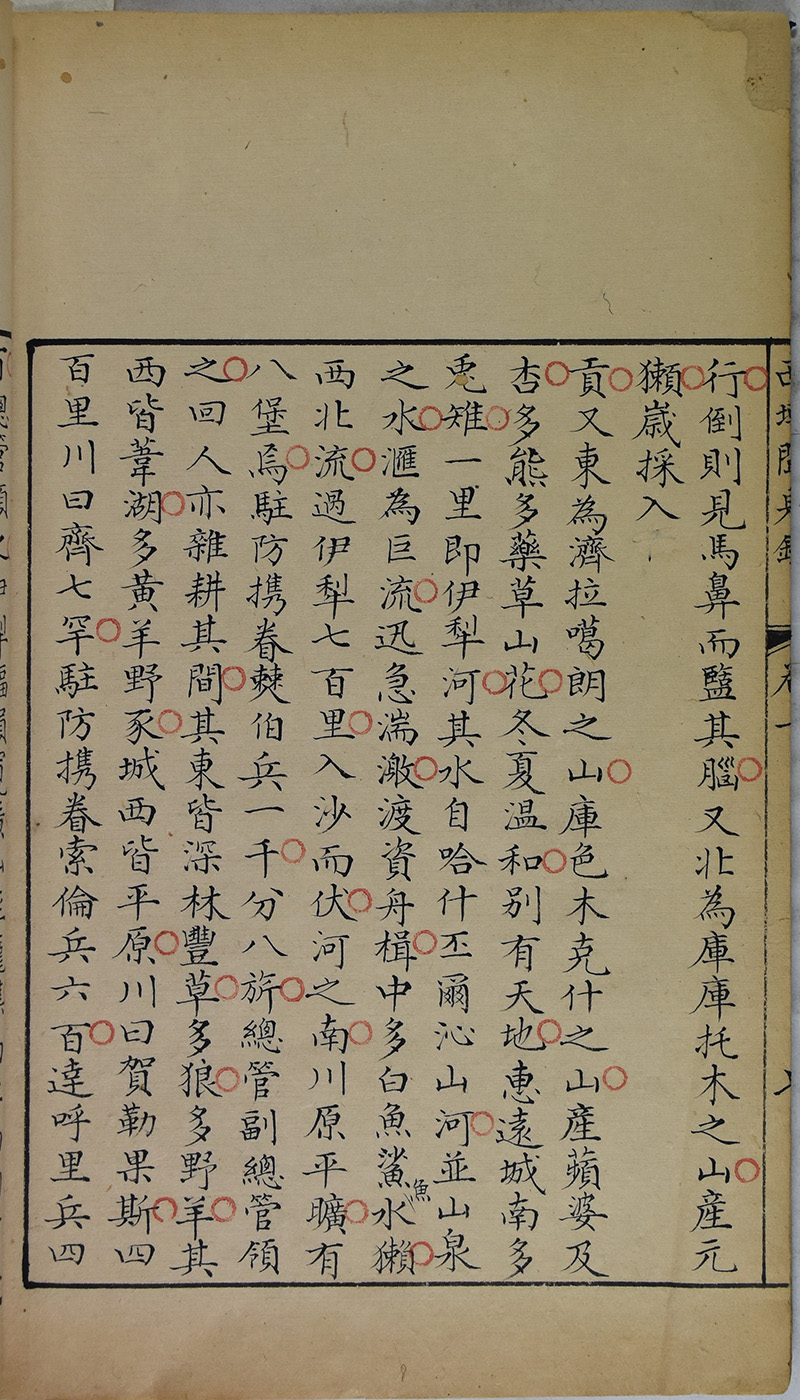 行倒則見馬鼻而盬其腦又北為庫庫托木之山産元
獺歲採入
貢又東為濟拉噶朗之山庫色木克什之山産蘋婆及
杏多熊多藥草山花冬夏温和別有天地惠遠城南多
兎雉一里即伊犁河其水自哈什丕爾沁山河並山泉
之水滙為巨流迅急湍潡渡資舟楫中多白魚鯊魚水獺
西北流過伊犁七百里入沙而伏河之南川原平曠有
八堡焉駐防携眷
伯兵一千分八旂總管副總管領
之回人亦雜耕其間其東皆深林豐草多狼多野羊其
西皆葦湖多黃羊野豕城西皆平原川曰賀勒果斯四
百里川曰齊七罕駐防携眷索倫兵六百達呼里兵四